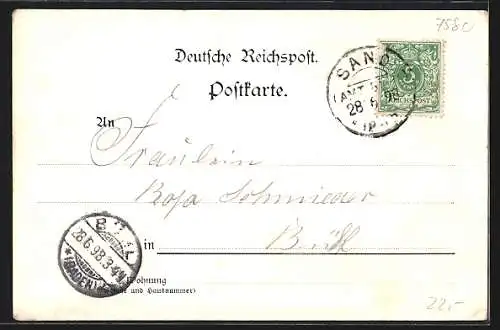 7580
Deutsche Reichspost.
Postkarte.
SAND
AMT B
28 6 98
REICHSPOST
An
Fräulein
Rosa Schmieder
in Bühl
28.6.98.3-4N.
(BADEN)
Wohnung
und Hausnummer)
22,-